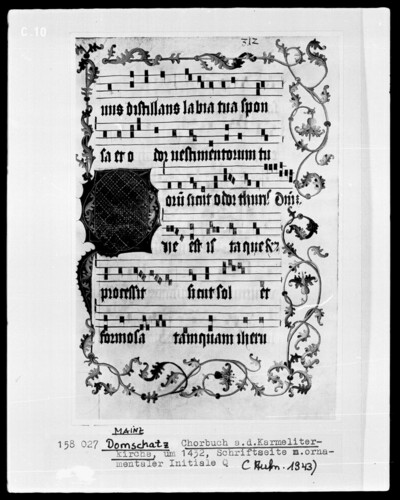 C 10
312
nus distillans labia tua spon
sa et o dor vestimentorum tu
orũ sicut odor thuris
Q ue est is ta que
processit sicut sol et
formosa tamquam iheru
MAINZ
158 027 Domschatz Chorbuch a.d.Karmeliter-
kirche, um 1432, Schriftseite m.orna-
mentaler Initiale Q (Aufn. 1943)